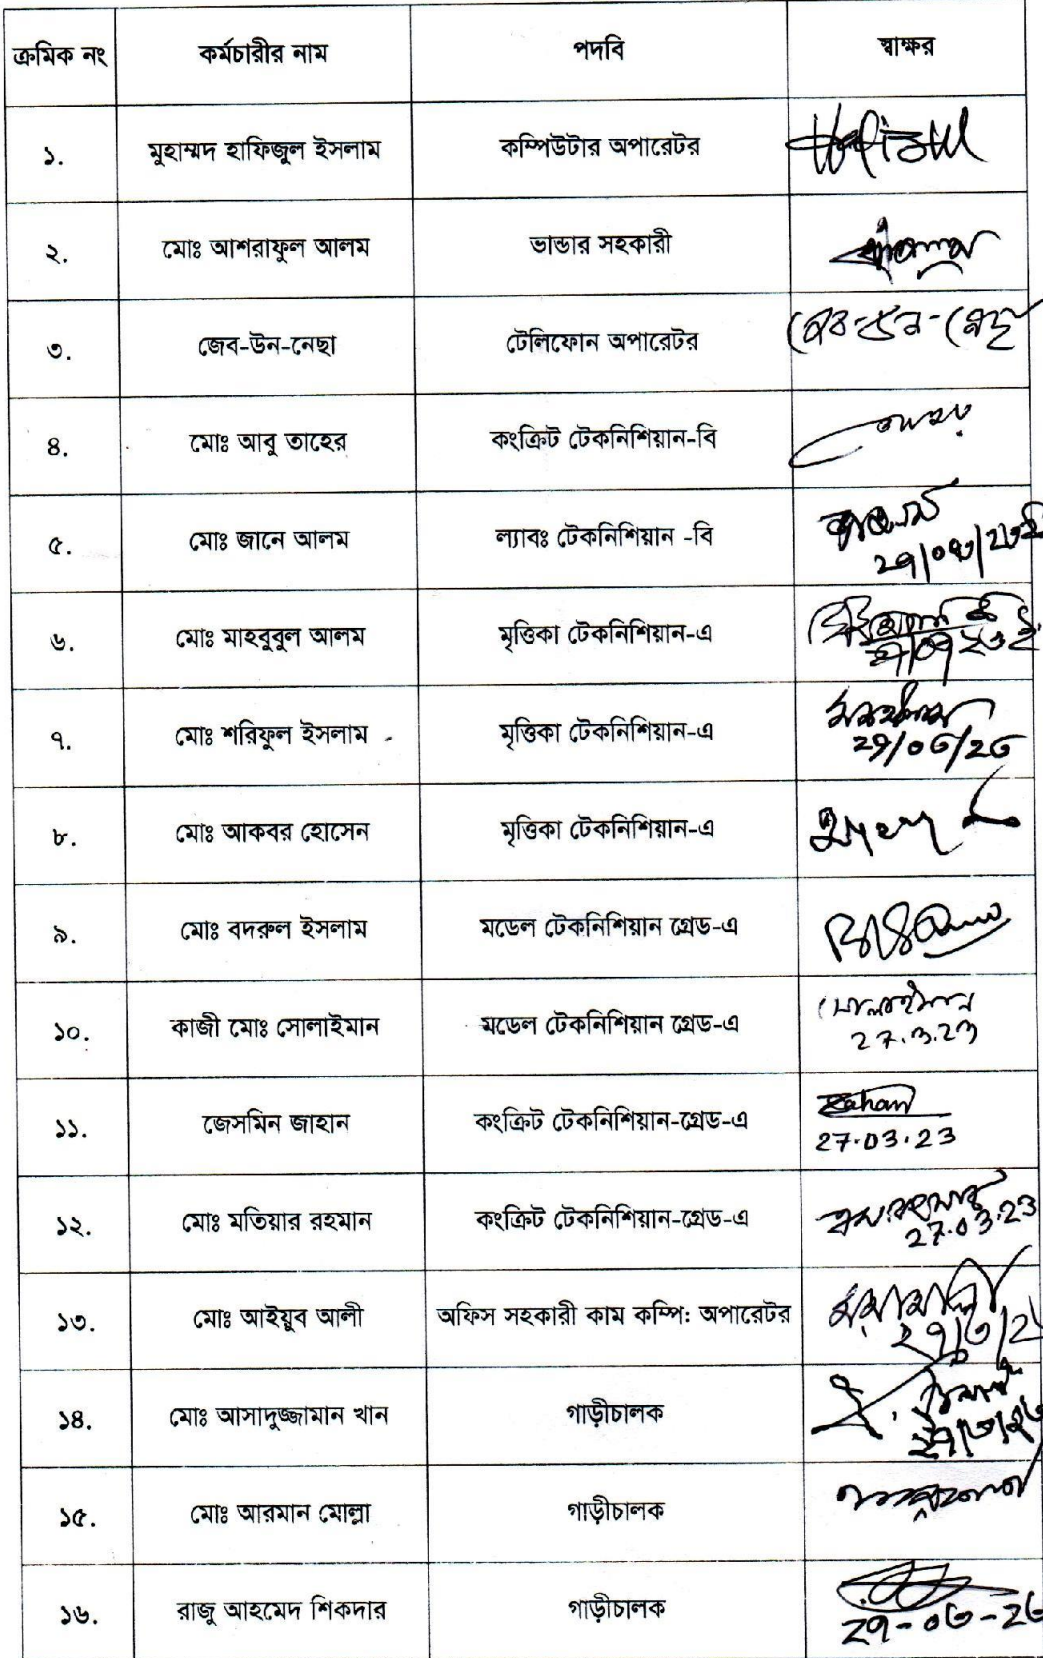 ক্রমিক নং কর্মচারীর নাম পদবি স্বাক্ষর
১. মুহাম্মদ হাফিজুল ইসলাম কম্পিউটার অপারেটর Hafizul
২. মোঃ আশরাফুল আলম ভান্ডার সহকারী
৩. জেব-উন-নেছা টেলিফোন অপারেটর জেব-উন-নেছা
৪. মোঃ আবু তাহের কংক্রিট টেকনিশিয়ান-বি
৫. মোঃ জানে আলম ল্যাবঃ টেকনিশিয়ান -বি
৬. মোঃ মাহবুবুল আলম মৃত্তিকা টেকনিশিয়ান-এ
৭. মোঃ শরিফুল ইসলাম মৃত্তিকা টেকনিশিয়ান-এ
২৭/০৩/২৩
৮. মোঃ আকবর হোসেন মৃত্তিকা টেকনিশিয়ান-এ
৯. মোঃ বদরুল ইসলাম মডেল টেকনিশিয়ান গ্রেড-এ
১০. কাজী মোঃ সোলাইমান মডেল টেকনিশিয়ান গ্রেড-এ সোলাইমান
27.3.23
১১. জেসমিন জাহান কংক্রিট টেকনিশিয়ান-গ্রেড-এ Jahan
27.03.23
১২. মোঃ মতিয়ার রহমান কংক্রিট টেকনিশিয়ান-গ্রেড-এ
27.03.23
১৩. মোঃ আইয়ুব আলী অফিস সহকারী কাম কম্পি: অপারেটর
১৪. মোঃ আসাদুজ্জামান খান গাড়ীচালক
১৫. মোঃ আরমান মোল্লা গাড়ীচালক
১৬. রাজু আহমেদ শিকদার গাড়ীচালক
২৭-০৩-২৩